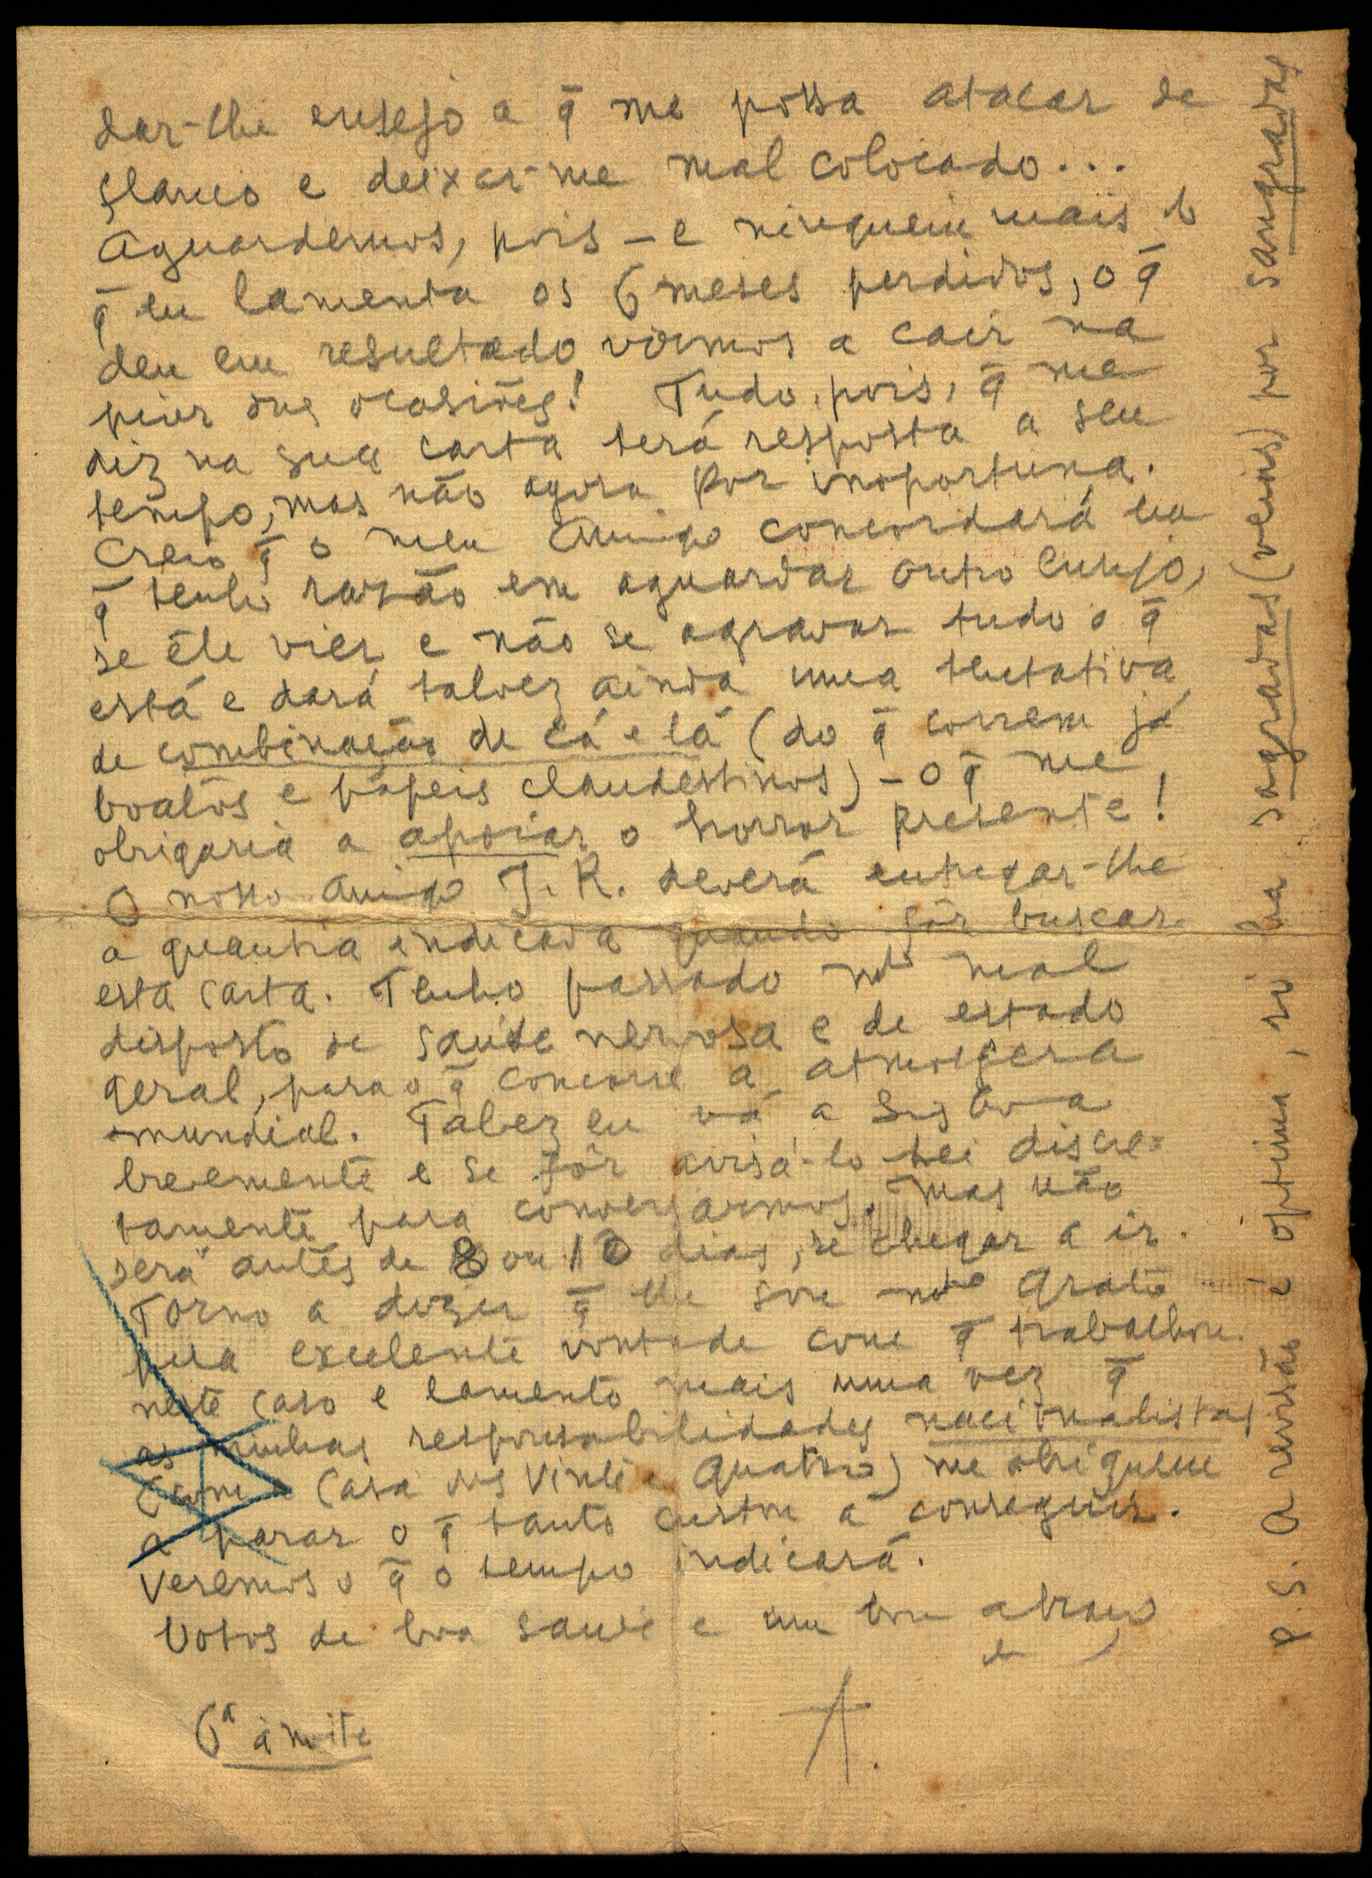 dar-lhe ensejo a q̄ me possa atacar de
flanco e deixar-me mal colocado...
Aguardemos, pois – e ninguem mais do
q̄ eu lamenta os 6 meses perdidos, o q̄
deu em resultado virmos a cair na
pior das ocasiões! Tudo, pois, q̄ me
diz na sua carta terá resposta a seu
tempo, mas não agora por inoportuna.
Creio q̄ o meu Amigo concordará em
q̄ tenho razão em aguardar outro ensejo,
se êle vier e não se agravar tudo o q̄
está e dará talvez ainda uma tentativa
de combinação de cá e lá (do q̄ correm já
boatos e papeis clandestinos) – o q̄ me
obrigaria a apoiar o horror presente!
O nosso Amigo J. R. deverá entregar-lhe
a quantia indicada quando fôr buscar
esta carta. Tenho passado mto mal
disposto de saúde nervosa e de estado
geral, para o q̄ concorre a atmosfera
mundial. Talvez eu vá a Lisboa
brevemente e se fôr avisá-lo hei discre-
tamente para conversarmos, mas não
será antes de 8 ou 10 dias, se chegar a ir.
Torno a dizer q̄ lhe sou mto grato
pela excelente vontade com q̄ trabalhou
neste caso e lamento mais uma vez q̄
as minhas responsabilidades nacionalistas
(como Casa dos Vinte e Quatro) me obriguem
a parar o q̄ tanto custou a conseguir.
Veremos o q̄ o tempo indicará.
Votos de boa saude e um bom abraço
do
A.
6ª à noite
P.S. A revisão é óptima, só ha sagradas (veias) por sangradas